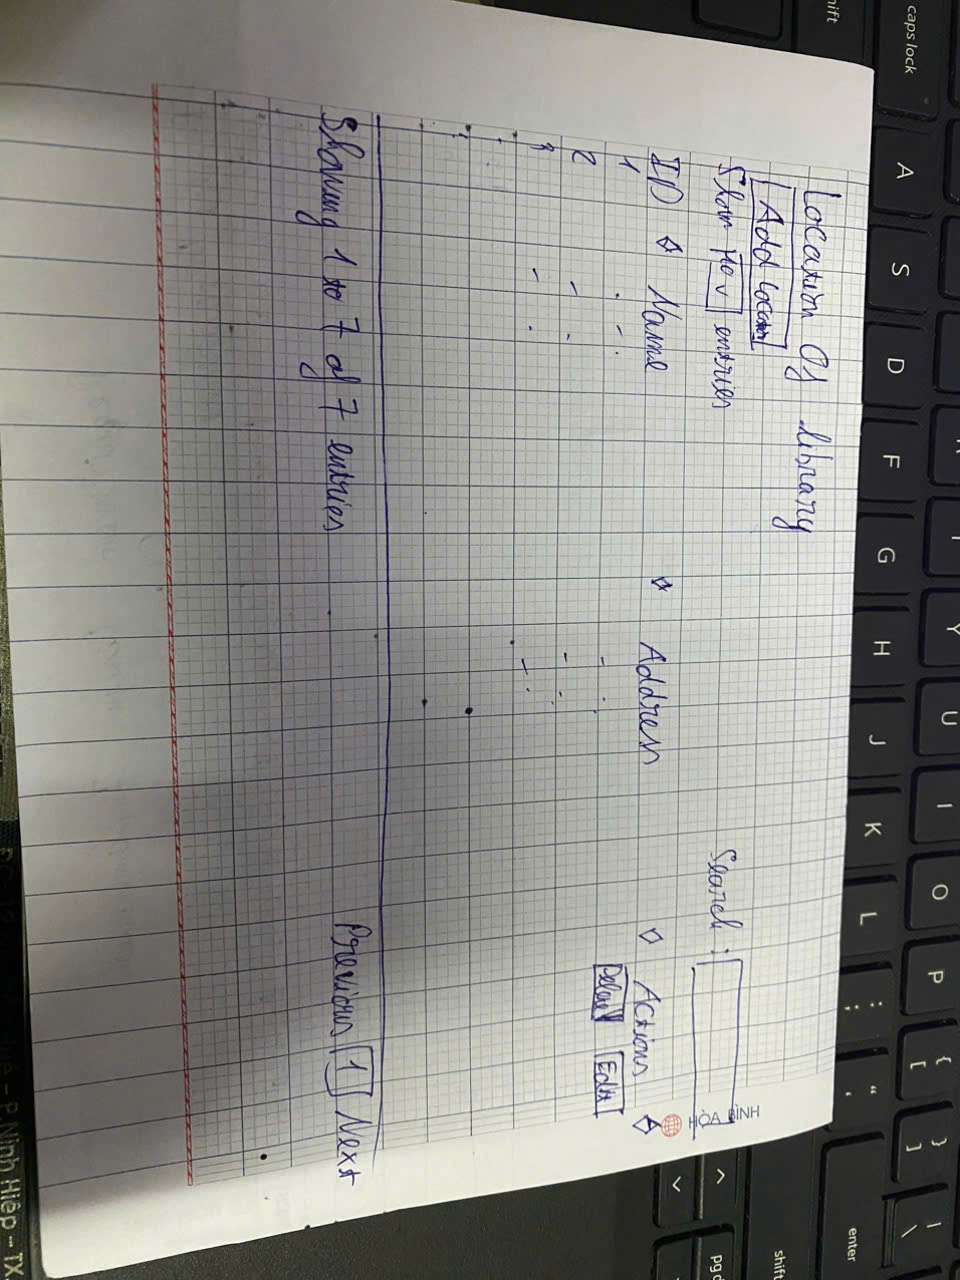 Location Of library
Add Location
Show 10 entries
Search :
ID Name Address Actions
1 Edit
2
3
Showing 1 to 7 of 7 entries
Previous 1 Next
HÒA BÌNH
caps lock
A S D F G H J K L ; : ' "
enter
shift
U I O P { [ } ] | \
Y
pg d